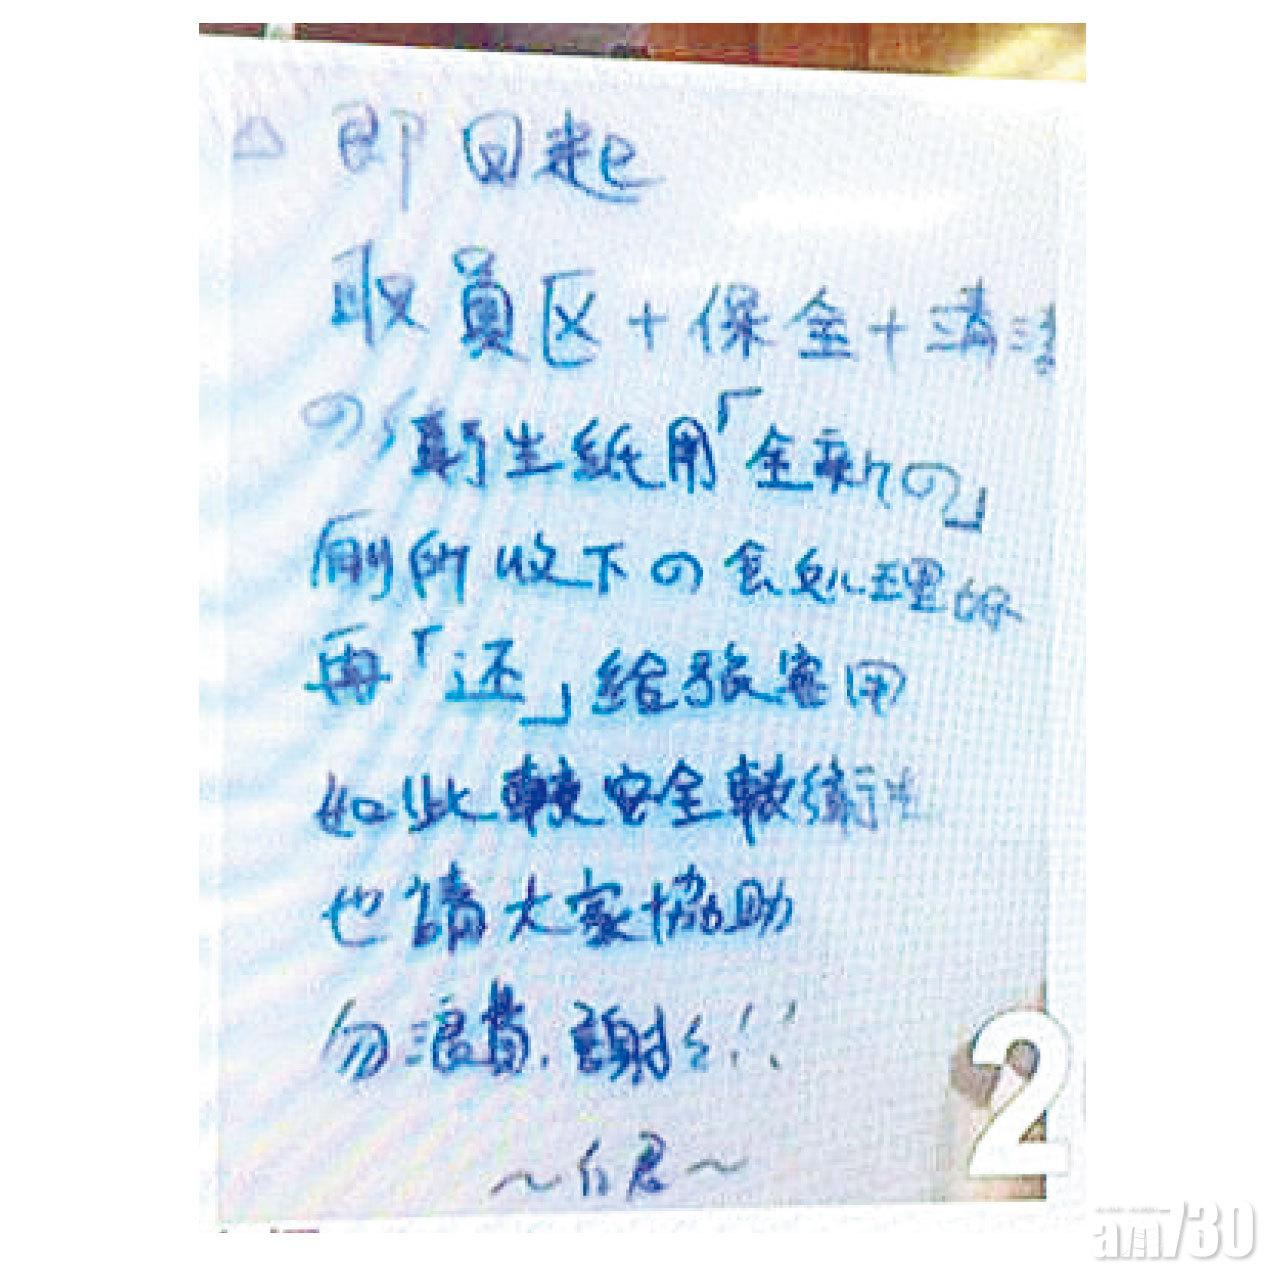 △即日起
取員区+保全+清洁
の衛生紙用「全新の」
廁所收下の会処理好
再「还」給旅客用
如此較安全較衛生
也請大家協助
勿浪費,謝々!!
~君~
2
am730